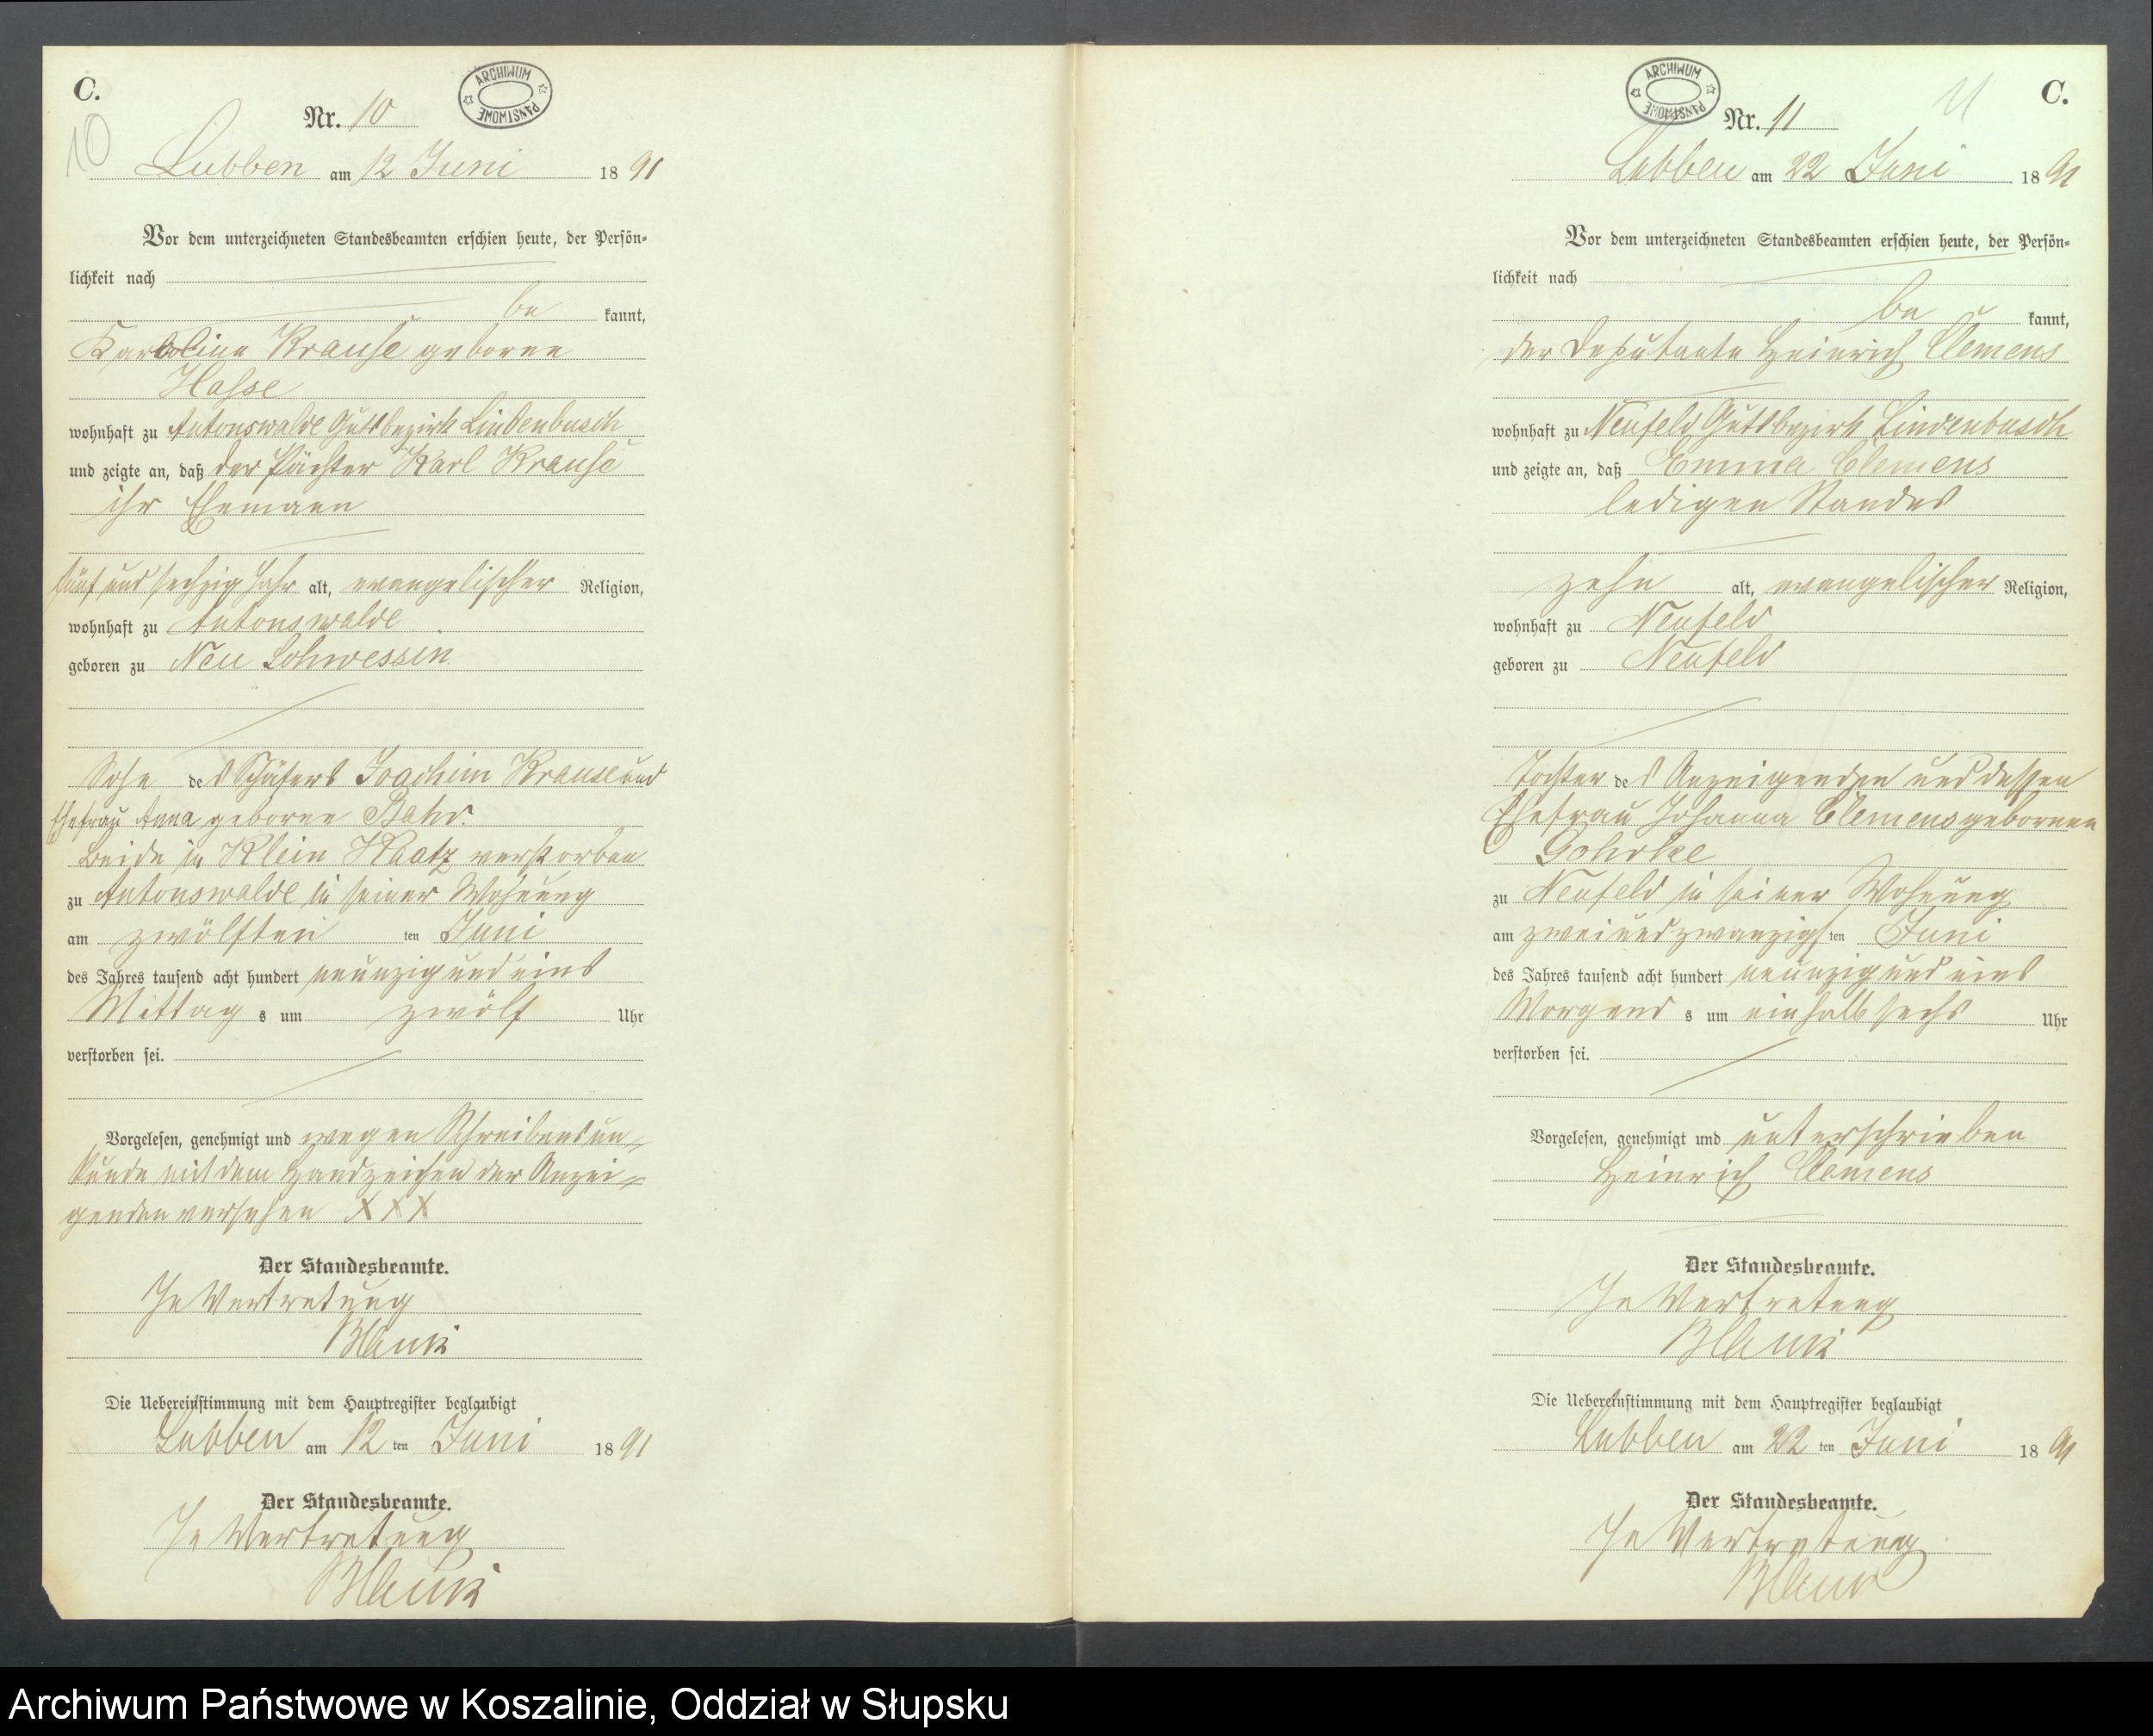 C.
10
ARCHIWUM PAŃSTWOWE
Nr. 10
Lubben am 12 Juni 1891
Vor dem unterzeichneten Standesbeamten erschien heute, der Persön-
lichkeit nach
be kannt,
Karoline Krause geborne
Hasse
wohnhaft zu Antonswalde Gutsbezirk Lindenbusch
und zeigte an, daß der Pächter Karl Krause
ihr Ehemann
fünf und sechzig Jahr alt, evangelischer Religion,
wohnhaft zu Antonswalde
geboren zu Neu Schwessin
Sohn des Schäfers Joachim Krause und
Ehefrau Anna geborne Bahr.
beide in Klein verstorben
zu Antonswalde in seiner Wohnung
am zwölften ten Juni
des Jahres tausend acht hundert neunzig und eins
Mittag s um zwölf Uhr
verstorben sei.
Vorgelesen, genehmigt und wegen Schreibensun-
kunde mit dem Handzeichen der Anzei-
genden versehen XXX
Der Standesbeamte.
In Vertretung
Blank
Die Uebereinstimmung mit dem Hauptregister beglaubigt
Lubben am 12 ten Juni 1891
Der Standesbeamte.
In Vertretung
Blank
C.
11
ARCHIWUM PAŃSTWOWE
Nr. 11
Lubben am 22 Juni 1891
Vor dem unterzeichneten Standesbeamten erschien heute, der Persön-
lichkeit nach
be kannt,
der Deputante Heinrich Clemens
wohnhaft zu Neufeld Gutsbezirk Lindenbusch
und zeigte an, daß Emma Clemens
ledigen Standes
zehn alt, evangelischer Religion,
wohnhaft zu Neufeld
geboren zu Neufeld
Tochter des Anzeigenden und dessen
Ehefrau Johanna Clemens gebornen
Gohrke
zu Neufeld in seiner Wohnung
am zweiundzwanzigsten Juni
des Jahres tausend acht hundert neunzig und eins
Morgend s um einhalb sechs Uhr
verstorben sei.
Vorgelesen, genehmigt und unterschrieben
Heinrich Clemens
Der Standesbeamte.
In Vertretung
Blank
Die Uebereinstimmung mit dem Hauptregister beglaubigt
Lubben am 22 ten Juni 1891
Der Standesbeamte.
In Vertretung
Blank
Archiwum Państwowe w Koszalinie, Oddział w Słupsku